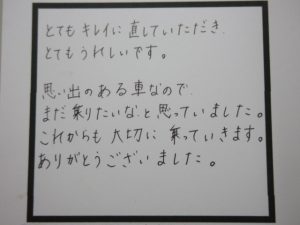 とてもキレイに直していただき
とてもうれしいです。
思い出のある車なので
まだ乗りたいな と思っていました。
これからも大切に乗っていきます。
ありがとうございました。